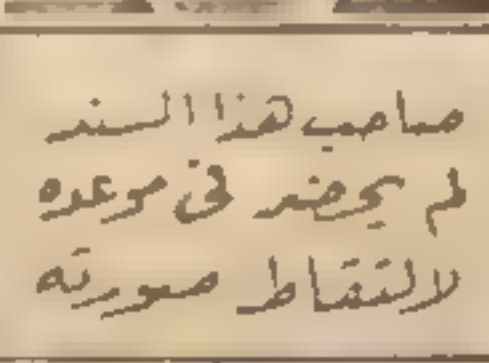 صاحب هذا السند
لم يحضر في موعده
لالتقاط صورته